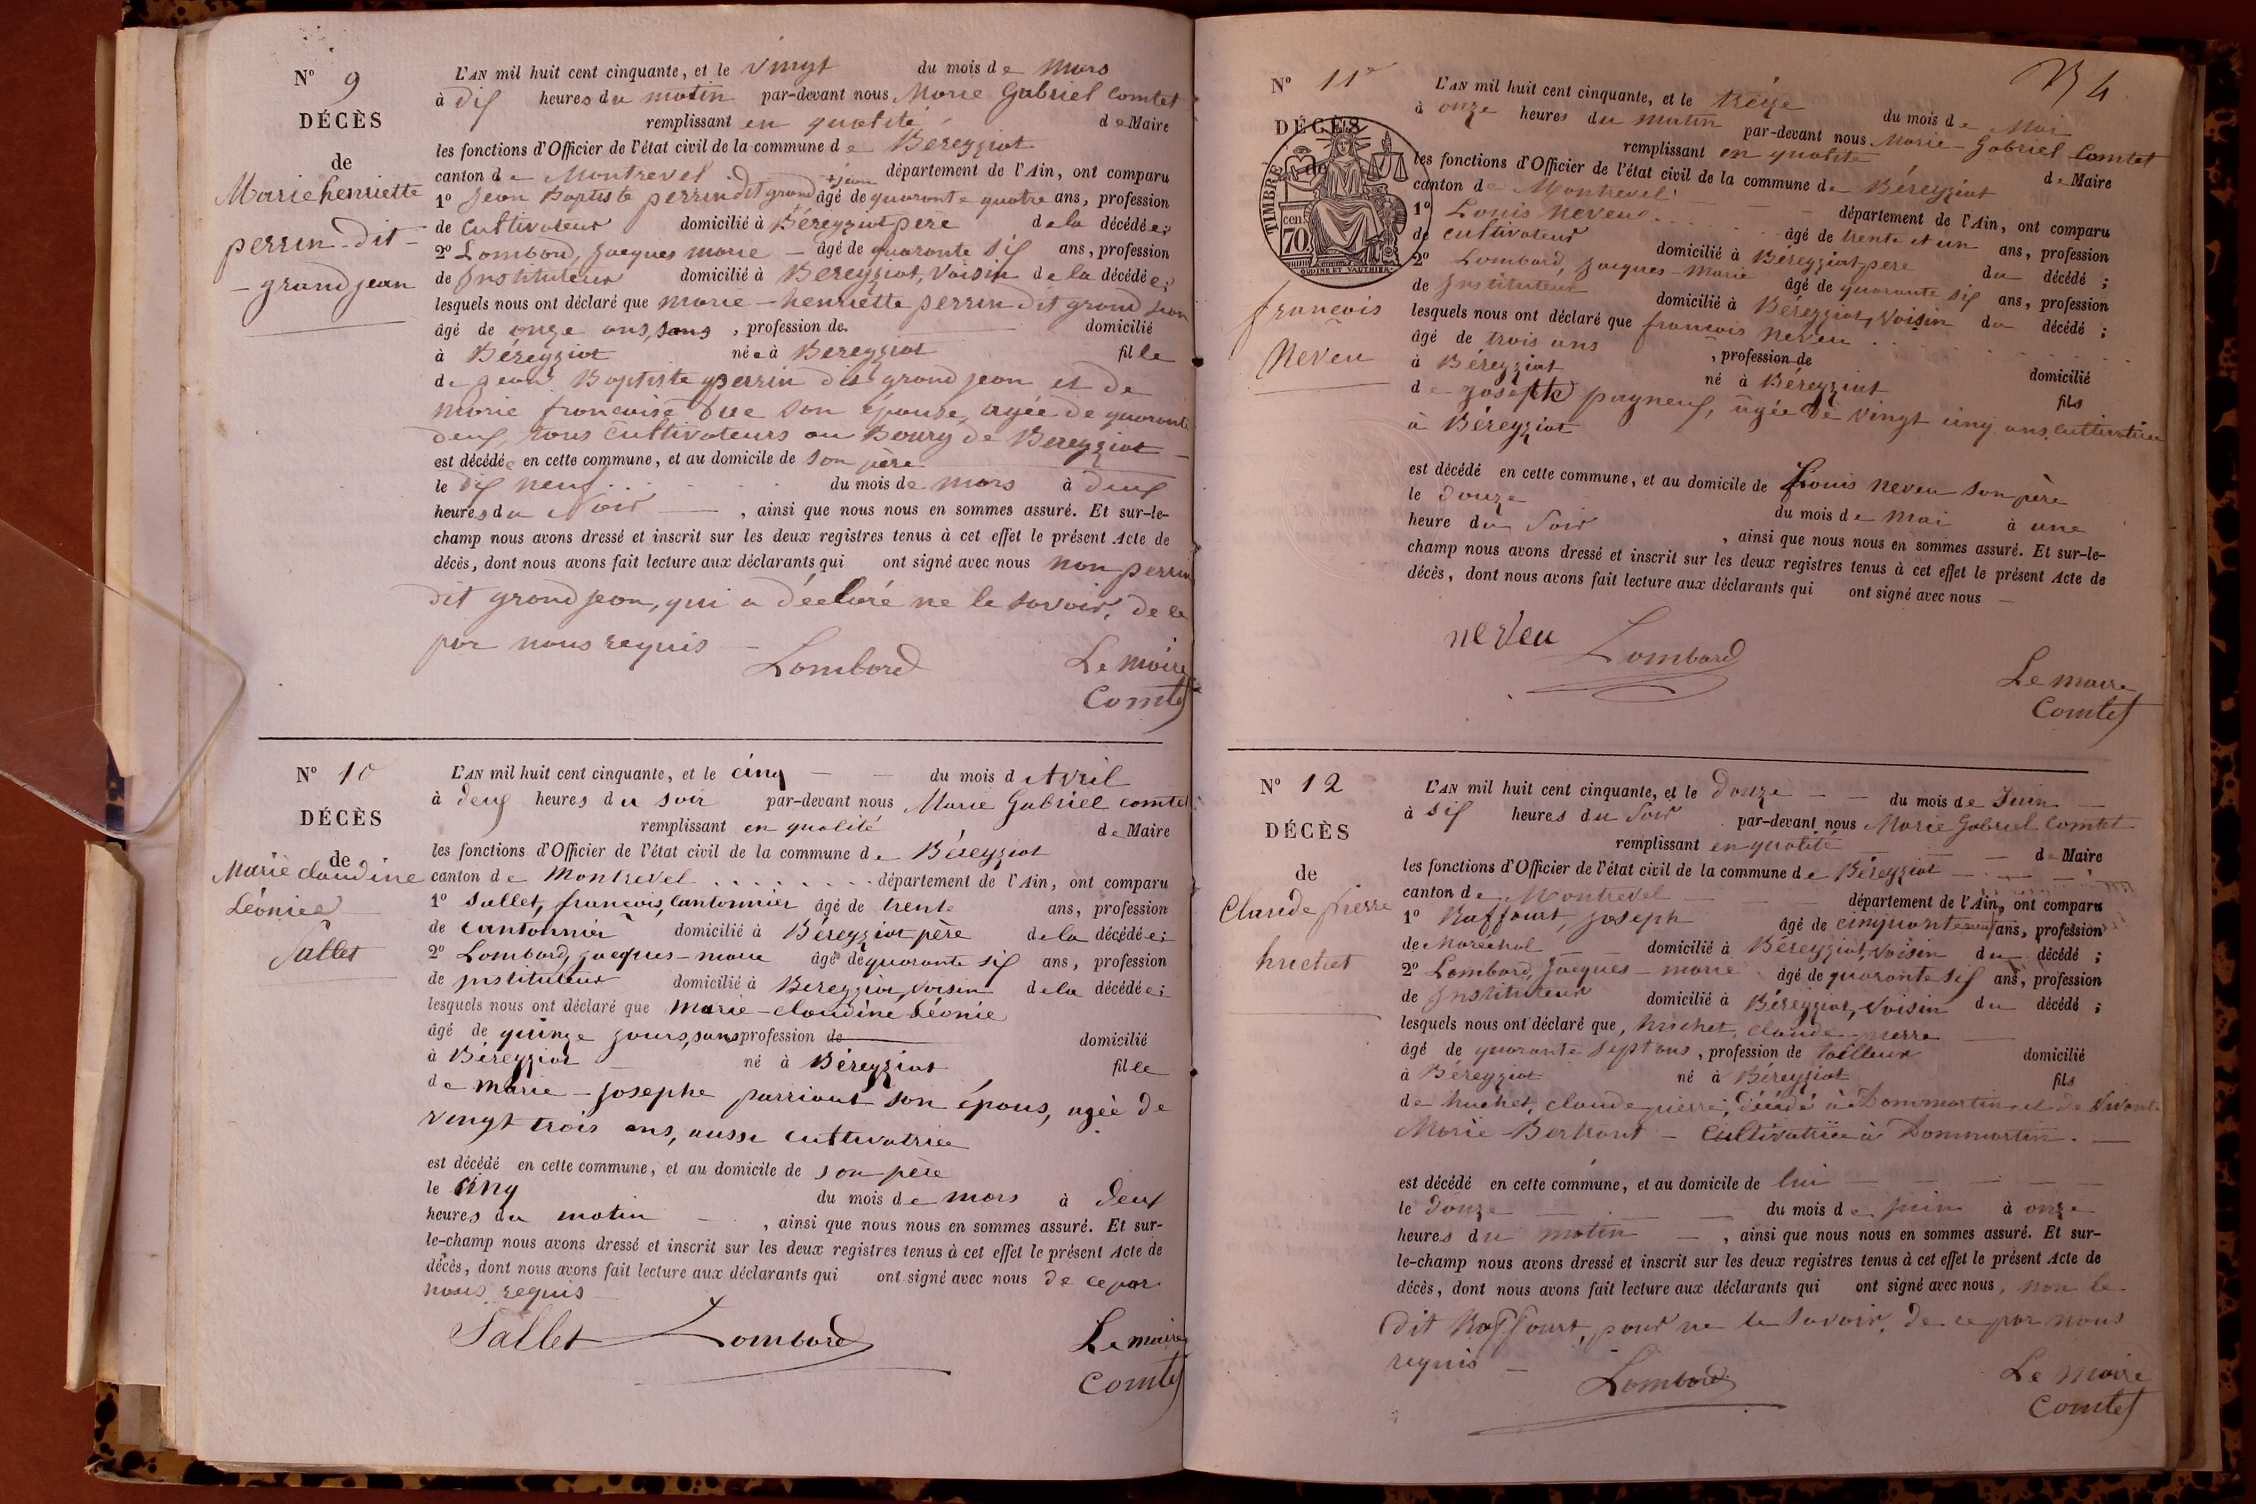 Nº 9
DÉCÈS
de
Marie henriette
perrin - dit -
- grand jean
L'AN mil huit cent cinquante, et le vingt du mois de Mars
à dix heures du matin par-devant nous Marie Gabriel Comtet
remplissant en qualité de Maire
les fonctions d'Officier de l'état civil de la commune de Béreyziat
canton de Montrevel département de l'Ain, ont comparu
1º Jean Baptiste perrin dit grand jean âgé de quarante quatre ans, profession
de Cultivateur domicilié à Béreyziat pere de la décédée;
2º Lombard, Jacques marie - âgé de quarante six ans, profession
de Instituteur domicilié à Bereyziat, Voisin de la décédée;
lesquels nous ont déclaré que marie - henriette perrin dit grand jean
âgé de onze ans, sans, profession de domicilié
à Béreyziat née à Bereyziat fille
de Jean Baptiste perrin dit grand jean et de
Marie francoise son épouse, agée de quarante
deux, tous cultivateurs au Bourg de Bereyziat -
est décédée en cette commune, et au domicile de son père
le dix neuf du mois de mars à deux
heures du Soir, ainsi que nous nous en sommes assuré. Et sur-le-
champ nous avons dressé et inscrit sur les deux registres tenus à cet effet le présent Acte de
décès, dont nous avons fait lecture aux déclarants qui ont signé avec nous non perrin
dit grand jean, qui a déclaré ne le savoir, de ce
par nous requis -
Lombard Le Maire
Comtet
Nº 10
DÉCÈS
de
Marie claudine
Léonie
Sallet
L'AN mil huit cent cinquante, et le cinq - - du mois d Avril
à deux heures du soir par-devant nous Marie Gabriel Comtet
remplissant en qualité de Maire
les fonctions d'Officier de l'état civil de la commune de Béreyziat
canton de Montrevel . . . . . . . . département de l'Ain, ont comparu
1º Sallet, francois, Cantonnier âgé de trente ans, profession
de cantonnier domicilié à Béreyziat père de la décédée;
2º Lombard, jacques - marie âgé de quarante six ans, profession
de Instituteur domicilié à Bereyziat, voisin de la décédée;
lesquels nous ont déclaré que Marie - claudine Léonie
âgé de quinze jours, sans profession de domicilié
à Béreyziat né à Béreyziat fille
de Marie - Josephe parriaut son épous, agée de
vingt trois ans, aussi cultivatrice
est décédé en cette commune, et au domicile de son père
le cinq du mois de mars à deux
heures du matin -, ainsi que nous nous en sommes assuré. Et sur-
le-champ nous avons dressé et inscrit sur les deux registres tenus à cet effet le présent Acte de
décès, dont nous avons fait lecture aux déclarants qui ont signé avec nous de ce par
nous requis
Sallet Lombard Le maire
Comtet
4
Nº 11
DÉCÈS
de
TIMBRE
cen.
70
OUDINÉ ET VAUTHIER
francois
Neveu
L'AN mil huit cent cinquante, et le treize du mois de Mai
à onze heures du matin par-devant nous Marie - Gabriel Comtet
remplissant en qualité de Maire
les fonctions d'Officier de l'état civil de la commune de Béreyziat
canton de Montrevel département de l'Ain, ont comparu
1º Louis Neveu âgé de trente et un ans, profession
de cultivateur domicilié à Béreyziat, pere du décédé ;
2º Lombard, Jacques - Marie âgé de quarante six ans, profession
de Instituteur domicilié à Béreyziat, Voisin du décédé ;
lesquels nous ont déclaré que francois Neveu
âgé de trois ans, profession de domicilié
à Béreyziat né à Béreyziat fils
de Josephte pagneux, âgée de vingt cinq ans, cultivatrice
à Béreyziat
est décédé en cette commune, et au domicile de Louis neveu son père
le douze du mois de Mai à une
heure du Soir, ainsi que nous nous en sommes assuré. Et sur-le-
champ nous avons dressé et inscrit sur les deux registres tenus à cet effet le présent Acte de
décès, dont nous avons fait lecture aux déclarants qui ont signé avec nous -
neveu Lombard
Le maire
Comtet
Nº 12
DÉCÈS
de
Claude pierre
huchet
L'AN mil huit cent cinquante, et le Douze - - du mois de Juin -
à six heures du Soir par-devant nous Marie Gabriel Comtet
remplissant en qualité - de Maire
les fonctions d'Officier de l'état civil de la commune de Béreyziat
canton de Montrevel département de l'Ain, ont comparu
1º Raffourt, joseph âgé de cinquante neuf ans, profession
de Maréchal domicilié à Béreyziat, Voisin du décédé ;
2º Lombard, Jacques - marie âgé de quarante six ans, profession
de Instituteur domicilié à Béreyziat, Voisin du décédé ;
lesquels nous ont déclaré que, huchet, claude - pierre
âgé de quarante sept ans, profession de tailleur domicilié
à Béreyziat né à Béreyziat fils
de huchet, claude pierre, décédé à Dommartin et de Vivante
Marie Bertrant - Cultivatrice à Dommartin. -
est décédé en cette commune, et au domicile de lui
le douze du mois de juin à onze
heures du matin -, ainsi que nous nous en sommes assuré. Et sur-
le-champ nous avons dressé et inscrit sur les deux registres tenus à cet effet le présent Acte de
décès, dont nous avons fait lecture aux déclarants qui ont signé avec nous, non le
dit Raffourt, pour ne le savoir, de ce par nous
requis -
Lombard Le Maire
Comtet